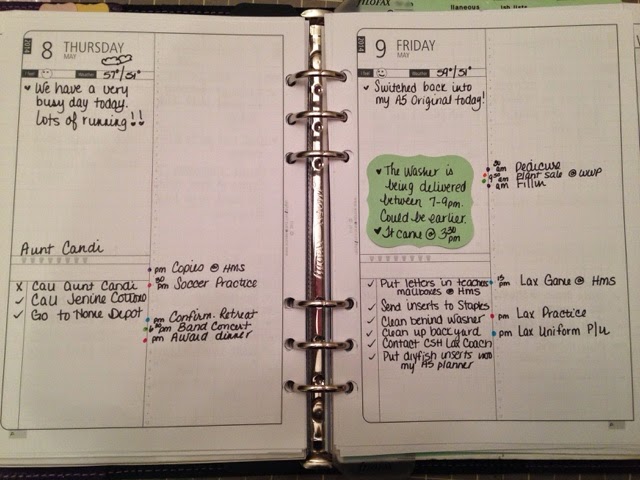 FILOFAX
llaneous
2014
8 THURSDAY
MAY
Weather
57°/51°
We have a very
busy day today.
Lots of running!!
Aunt Candi
pm Copies @ HMS
30 pm Soccer Practice
x Call Aunt Candi
✓ Call Jenine
✓ Go to Home Depot
pm Confirm. Retreat
pm Band Concert
pm Award dinner
2014
9 FRIDAY
MAY
Weather
59°/51°
Switched back into
my A5 Original today!
The Washer is
being delivered
between 7-9pm.
Could be earlier.
It came @ 3:30 pm
am Pedicure
am Plant sale @
am Fill in
✓ Put letters in teachers
mailboxes @ HMS
✓ Send inserts to Staples
✓ Clean behind washer
✓ Clean up backyard
✓ Contact CSH Lax Coach
✓ Put diyfish inserts into
my A5 planner
15 pm Lax Game @ HMS
pm Lax Practice
pm Lax Uniform P/U